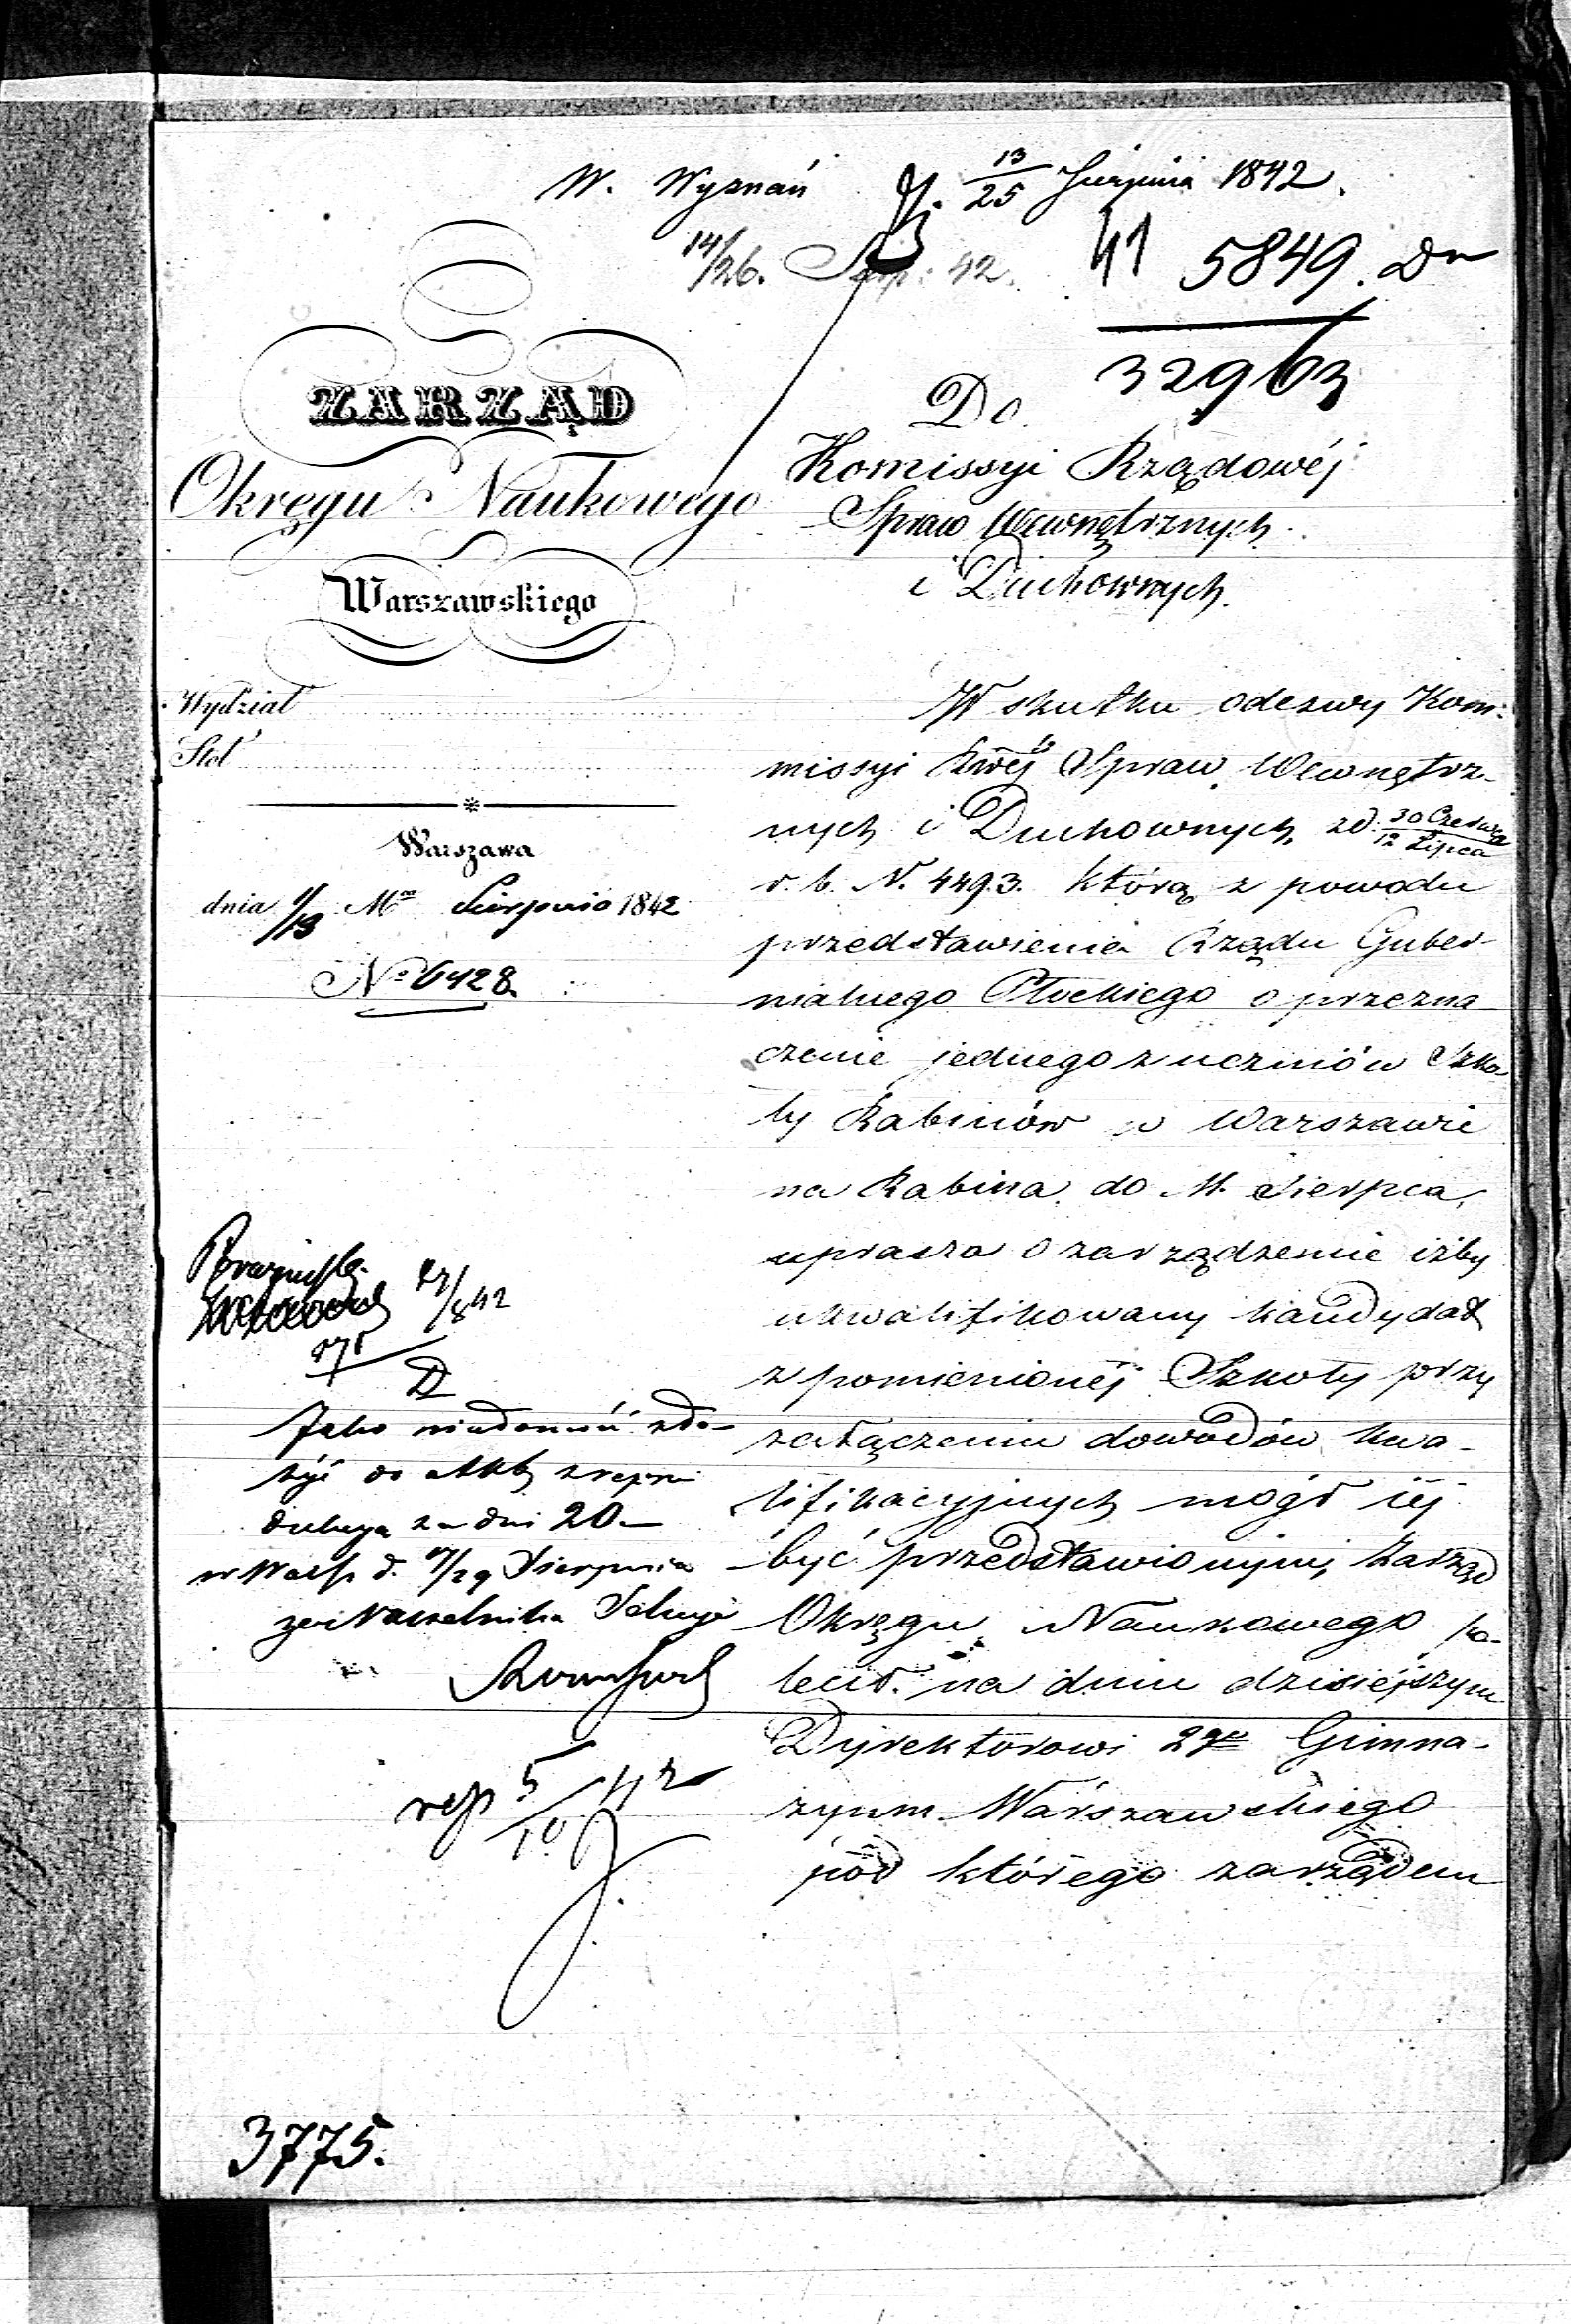 W. Wyznań 13/25 Sierpnia 1842.
14/26. Sierp: 42. 41 5849. Dn
32963
ZARZĄD
Okręgu Naukowego
Warszawskiego
Wydział
Stół
Warszawa
dnia 1/13 Mca Sierpnia 1842
No 6428.
Do
Komissyi Rządowéj
Spraw Wewnętrznych
i Duchownych.
W skutku odezwy Kom-
missyi Rwéj Spraw Wewnętrz-
nych i Duchownych, z d. 30 Czerwca/12 Lipca
r. b. N. 4493. którą z powodu
przedstawienia Rządu Guber-
nialnego Płockiego o przezna-
czenie jednego z uczniów Szko-
ły Rabinów w Warszawie
na Rabina do M. Sierpca,
uprasza o zarządzenie iżby
ukwalifikowany kandydat
z pomienionéj Szkoły przy
załączeniu dowodów kwa-
lifikacyjnych mógł iéj
być przedstawionym, Zarząd
Okręgu Naukowego po-
lecił na dniu dzisiéjszym
Dyrektorowi 2go Gimna-
zyum Warszawskiego
pod którego zarządem
27/8 42
Jako wiadomość zło-
żyć do Akt z repro-
dukcyą za dni 20
w Warsz. d. 17/29 Sierpnia
za Naczelnika Sekcyi
rep 5/10 42
3775.